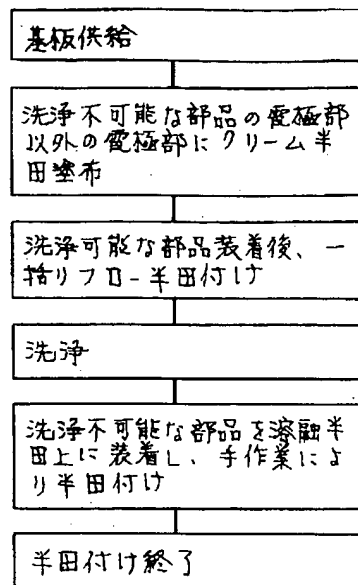 基板供給
洗浄不可能な部品の電極部
以外の電極部にクリーム半
田塗布
洗浄可能な部品装着後、一
括リフロー半田付け
洗浄
洗浄不可能な部品を溶融半
田上に装着し、手作業によ
り半田付け
半田付け終了